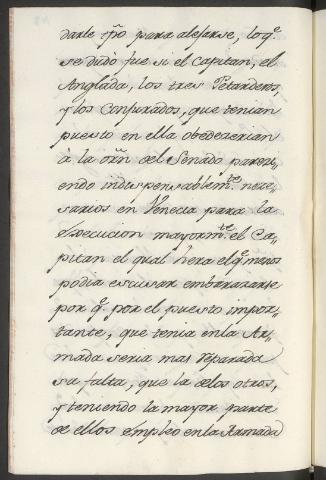 darle tpõ para alejarse, loq.e
se dudò fue si el Capitan, el
Anglada, los tres Petarderos,
y los Conjurados, que tenian
puesto en ella obedecerian
à la orñ del Senado pareci„
endo indispensablem.te nece„
sarios en Venecia para la
execucion mayorm.te el Ca„
pitan el qual hera el q.e menos
podia escusar embarcarse
por q.e por el puesto impor„
tante, que tenia en la Ar„
mada seria mas reparada
su falta, que la de los otros,
y teniendo la mayor parte
de ellos empleo en la Armada